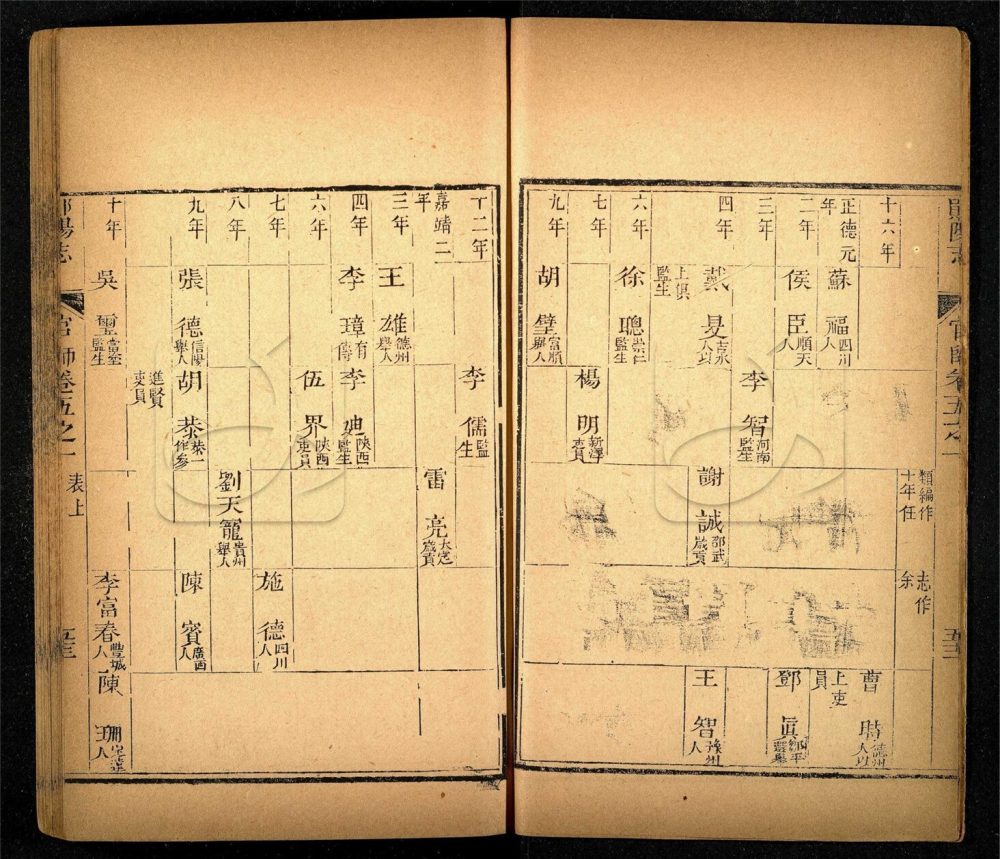 十六年
類編作
十年任
志作
余
正德元
年
蘇福四川
人
曹時德州
人以
上吏
員
二年
侯臣順天
人
鄧真
三年
李智河南
監生
四年
戴旻吉水
人以
上俱
監生
謝誠邵武
歲貢
王智
人
六年
徐聰崇仁
監生
七年
楊明
九年
胡璧富順
舉人
官師卷五之一
十二年
李儒監
生
嘉靖二
年
雷亮大定
歲貢
三年
王雄德州
舉人
四年
李璋有
傳
李迪陝西
監生
六年
伍界陝西
吏員
七年
施德四川
人
八年
劉天寵貴州
舉人
九年
張德信陽
舉人
胡恭恭一
作參
進賢
吏員
陳賓廣西
人
十年
吳璽
監生
李富春豐城
人
陳珊
人
官師卷五之一
表上